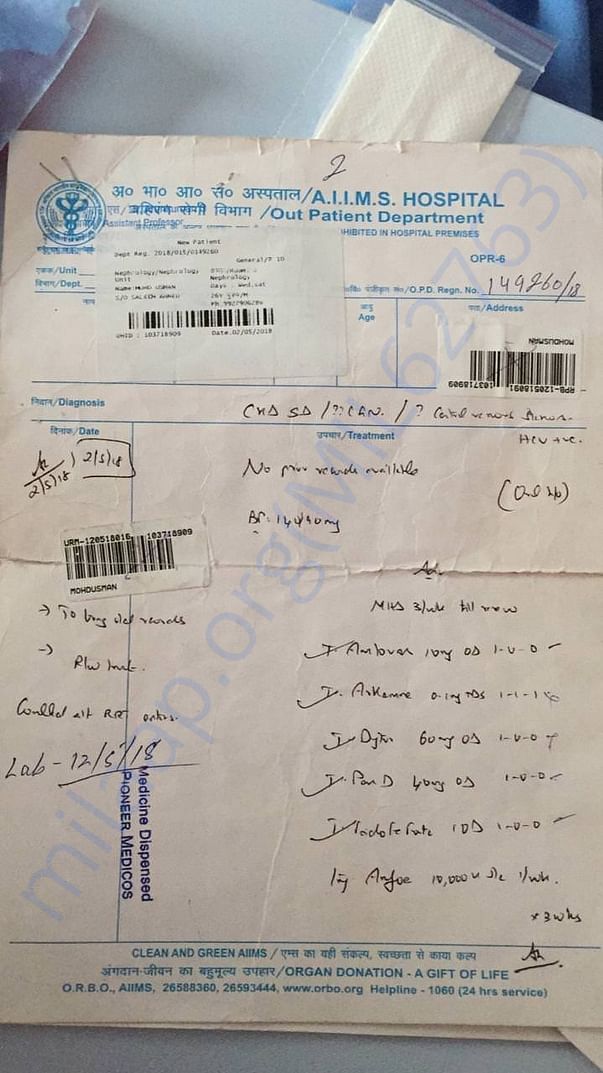 2
अ० भा० आ० सं० अस्पताल/A.I.I.M.S. HOSPITAL
बहिरंग रोगी विभाग /Out Patient Department
Assistant Professor
HIBITED IN HOSPITAL PREMISES
OPR-6
New Patient
Dept Reg. 2018/015/0149260
General/P ID
एकक/Unit
Nephrology/Nephrology,
Unit
Nephrology,
विभाग/Dept.
Name:MOHD USMAN
Days : Wed,Sat
नाम
S/O SALEEM AHMED
UHID : 103718909
Date.02/05/2018
पंजीकृत सं०/O.P.D. Regn. No. 149260/18
आयु
Age
पता/Address
MOHDUSMAN
RPB-120518091
103718909
निदान/Diagnosis
CKD 5D / ?? CGN. / ?
HCV +ve.
दिनांक/Date
उपचार/Treatment
2/5/18
2/5/18
No prior records available
BP. 144/90 mg
URM-120518016 103718909
MOHDUSMAN
Adv.
MHD 3/wk till now
→ To bring old records
T. Amlovas 10mg OD 1-0-0
→ R/w
T. Arkamine 0.1mg TDS 1-1-1
T. Dytor 60mg OD 1-0-0
Lab - 12/5/18
T. Pan D 40mg OD 1-0-0
Medicine Dispensed
PIONEER MEDICOS
1OD 1-0-0
Inj 10,000 u s/c 1/wk.
x 3 wks
CLEAN AND GREEN AIIMS / एम्स का यही संकल्प, स्वच्छता से काया कल्प
अंगदान-जीवन का बहुमूल्य उपहार/ORGAN DONATION - A GIFT OF LIFE
O.R.B.O., AIIMS, 26588360, 26593444, www.orbo.org Helpline - 1060 (24 hrs service)
milaap.org(MIL62763)